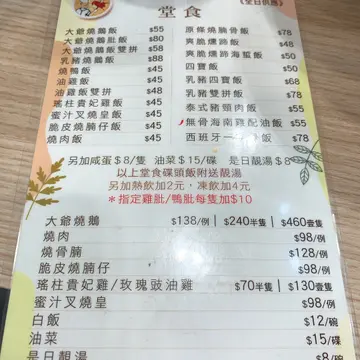 《全日供應》
堂食
大爺燒鵝飯 $55
大爺燒鵝肶飯 $80
大爺燒鵝飯雙拼 $58
乳豬燒鵝飯 $88
燒鴨飯 $45
油雞飯 $45
油雞飯雙拼 $48
瑤柱貴妃雞飯 $45
蜜汁叉燒皇飯 $45
脆皮燒腩仔飯 $45
燒肉飯 $45
原條燒腩骨飯 $78
爽脆燻蹄飯 $48
爽脆燻蹄海蜇飯 $58
四寶飯 $50
乳豬四寶飯 $68
乳豬雙拼飯 $78
泰式豬頸肉飯
*無骨海南雞配油飯
西班牙一
另加咸蛋$8/隻 油菜$15/碟 是日靚湯$8
以上堂食碟頭飯附送靚湯
另加熱飲加2元，凍飲加4元
*指定雞肶/鴨肶每隻加$10
大爺燒鵝 $138/例 | $240半隻 | $460壹隻
燒肉 $98/例
燒骨腩 $128/例
脆皮燒腩仔 $98/例
瑤柱貴妃雞/玫瑰豉油雞 $70半隻 | $130壹隻
蜜汁叉燒皇 $98/例
白飯 $12/碗
油菜 $15/碟
是日靚湯 $8/碗